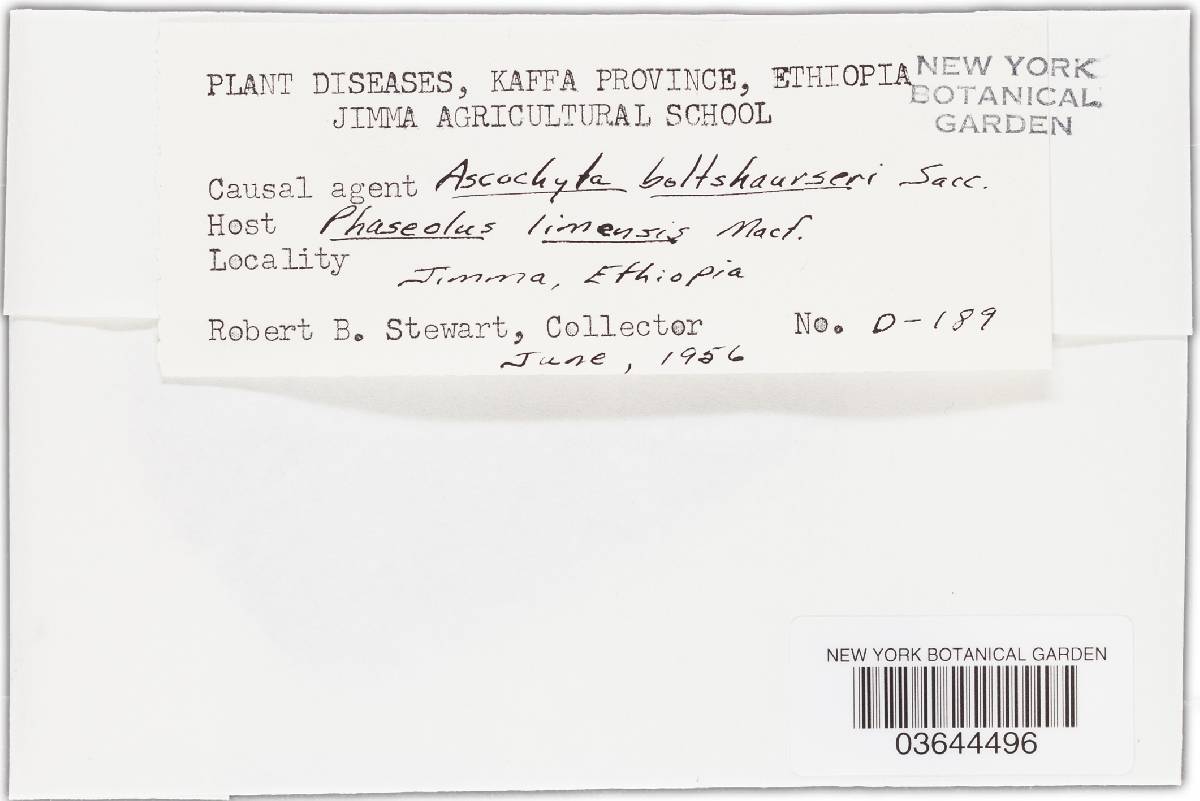 PLANT DISEASES, KAFFA PROVINCE, ETHIOPIA
JIMMA AGRICULTURAL SCHOOL
NEW YORK
BOTANICAL
GARDEN
Causal agent Ascochyta boltshaurseri Sacc.
Host Phaseolus limensis Macf.
Locality Jimma, Ethiopia
Robert B. Stewart, Collector No. D-189
June, 1956
NEW YORK BOTANICAL GARDEN
03644496